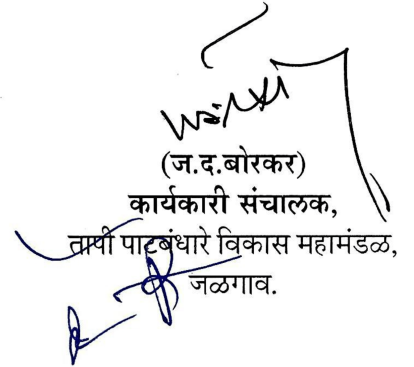 (ज.द.बोरकर)
कार्यकारी संचालक,
तापी पाटबंधारे विकास महामंडळ,
जळगाव.